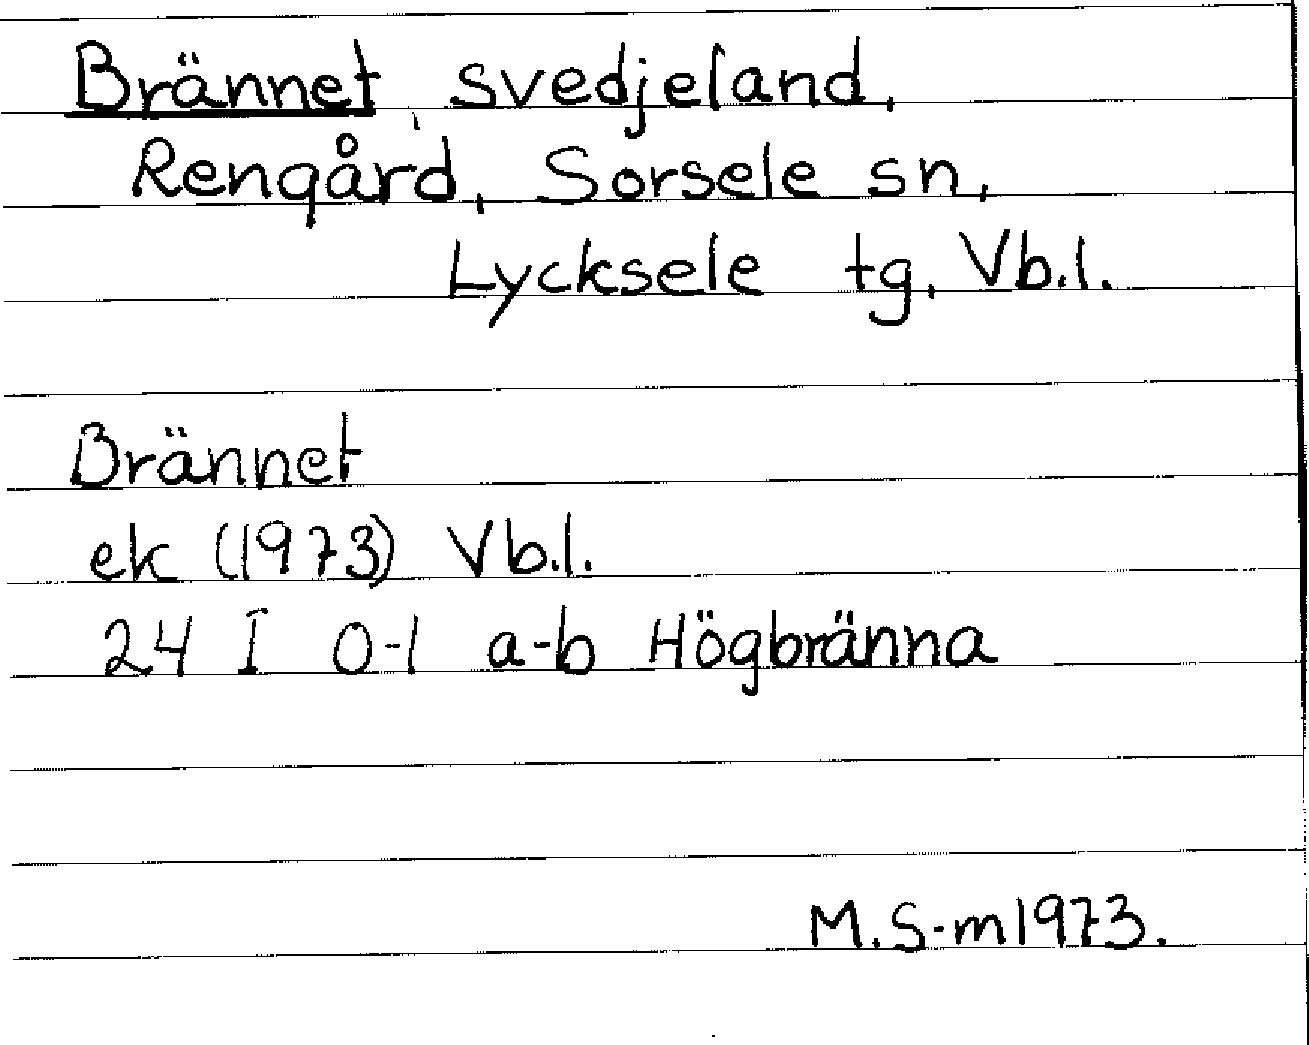 Brännet svedjeland,
Rengård, Sorsele sn,
Lycksele tg, Vb.l.
Brännet
ek (1973) Vb.l.
24 I 0-1 a-b Högbränna
M.S-m 1973.